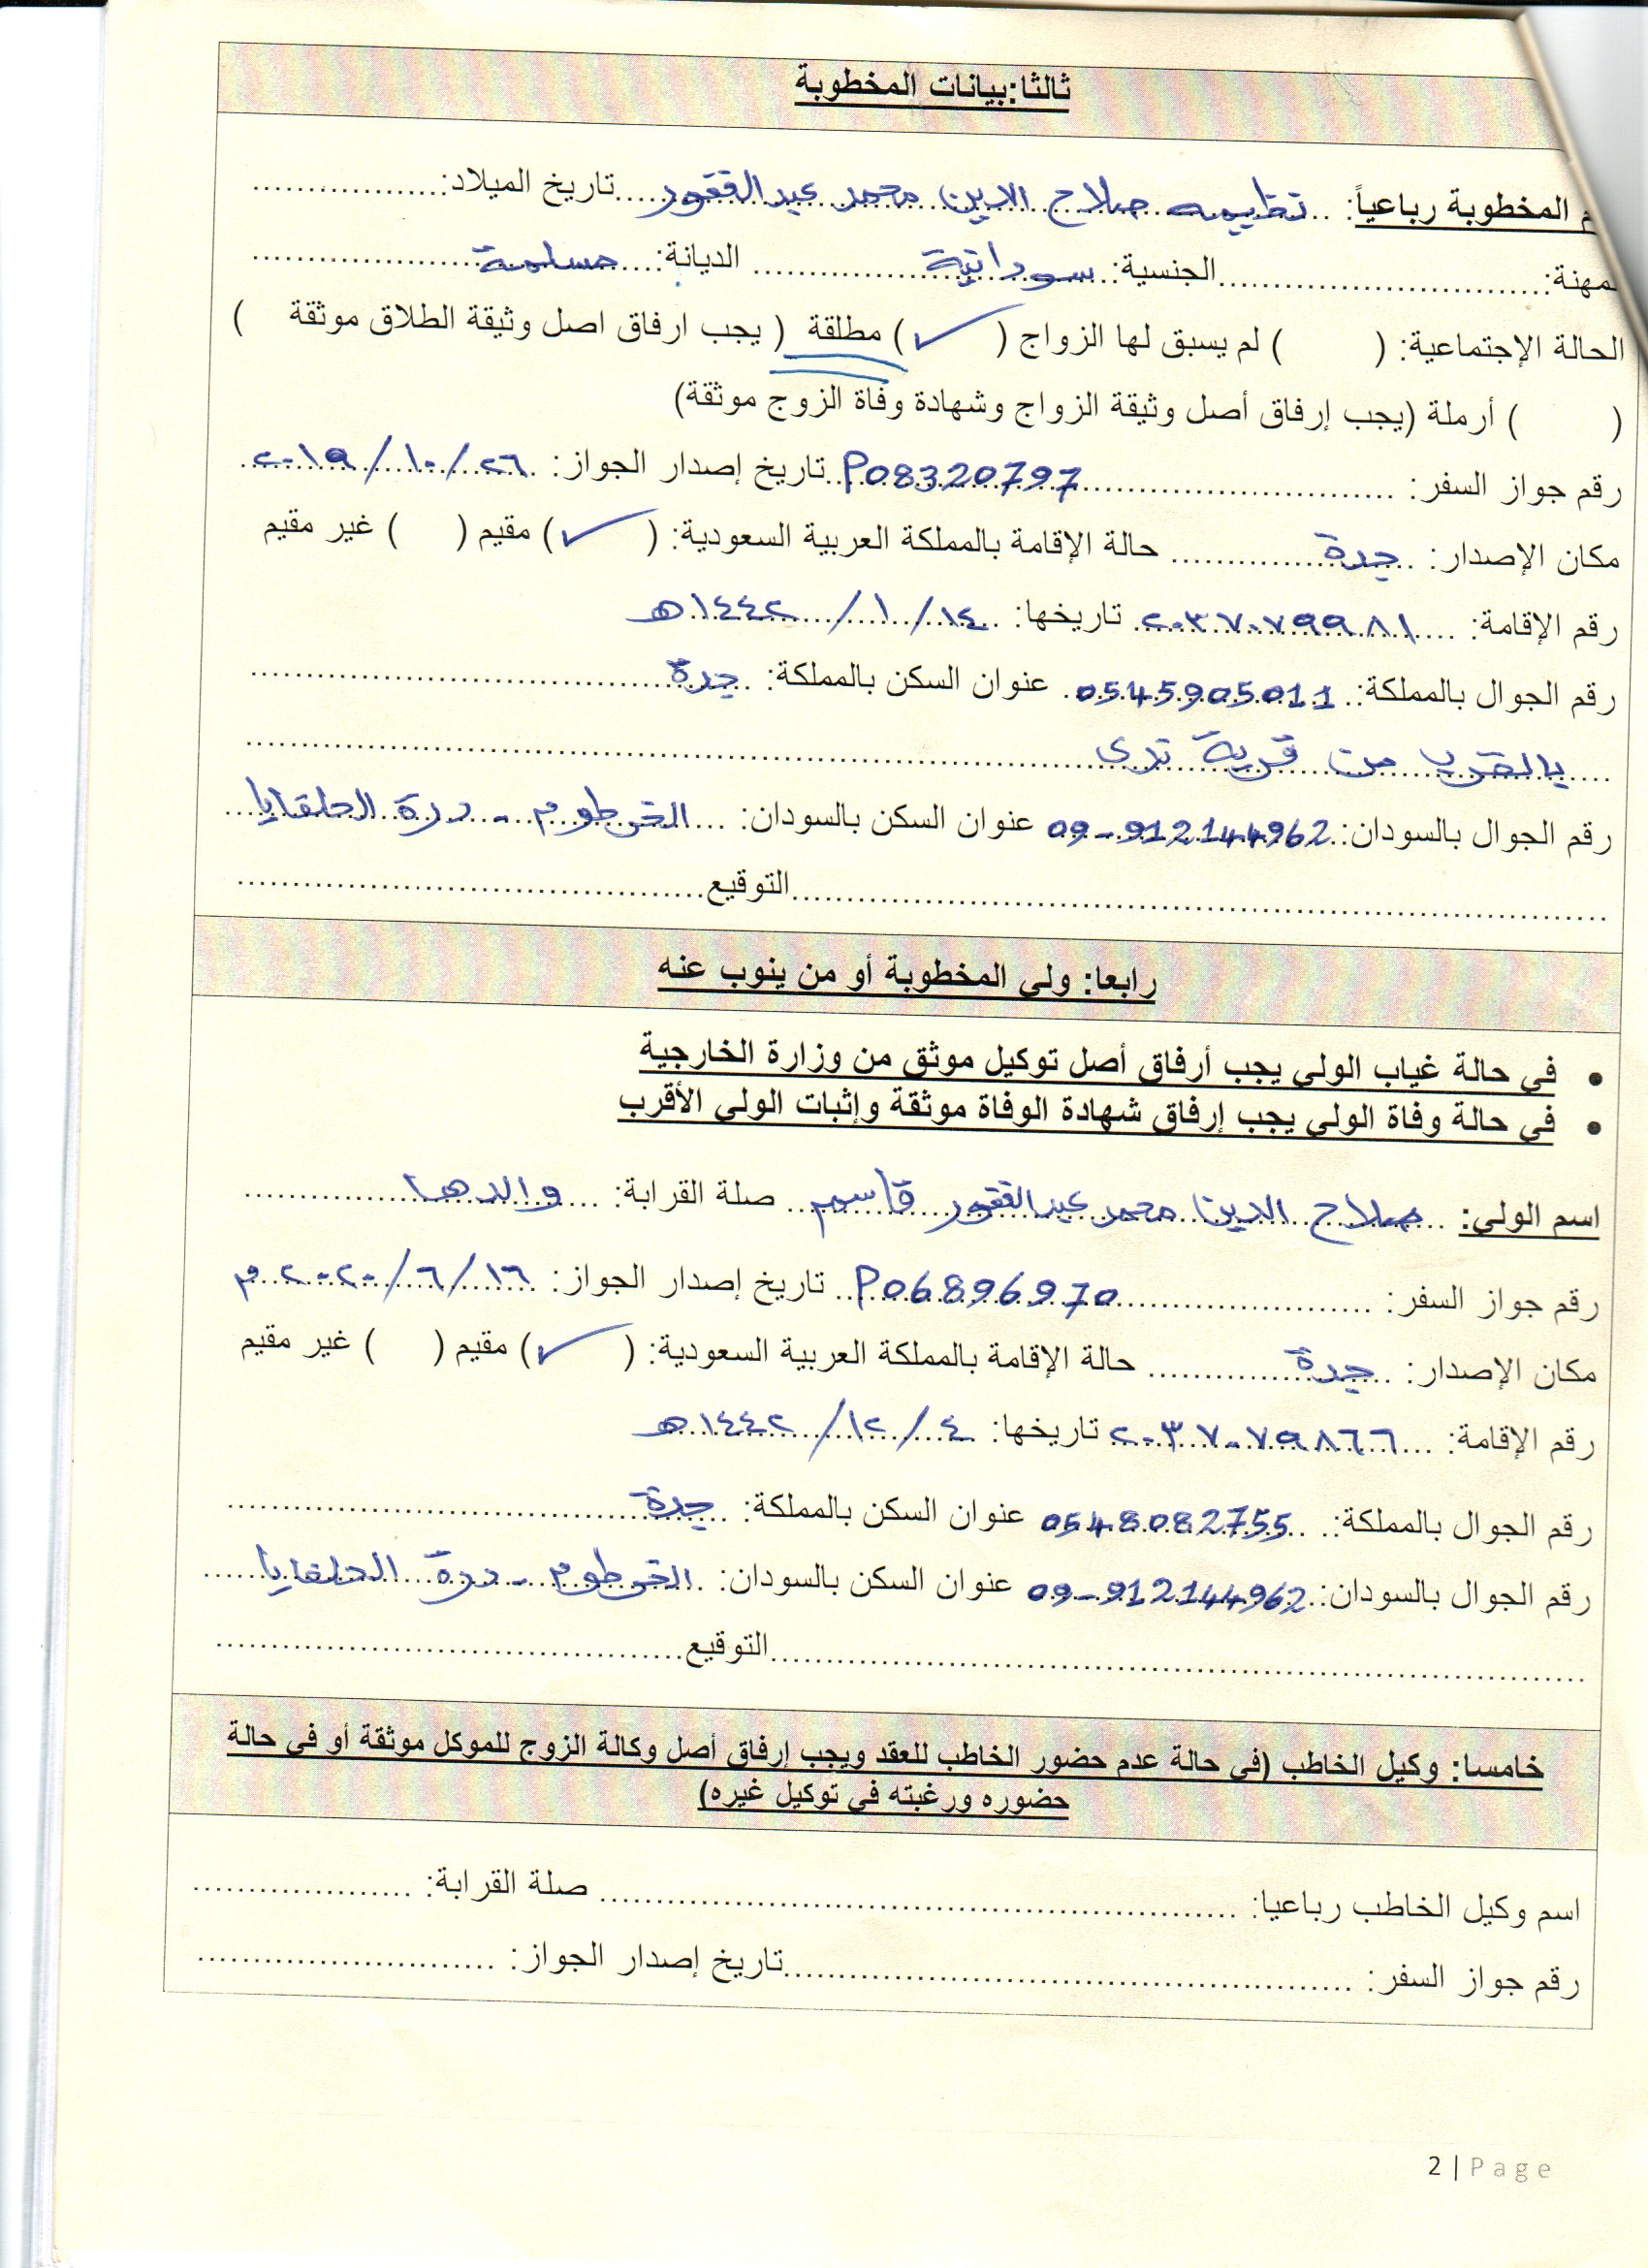 ثالثا:بيانات المخطوبة
م المخطوبة رباعياً: نظيمه صلاح الدين محمد عبدالغفور تاريخ الميلاد:
لمهنة: الجنسية: سودانية الديانة: مسلمة
الحالة الإجتماعية: ( ) لم يسبق لها الزواج (✓) مطلقة ( يجب ارفاق اصل وثيقة الطلاق موثقة )
( ) أرملة (يجب إرفاق أصل وثيقة الزواج وشهادة وفاة الزوج موثقة)
رقم جواز السفر: P08320797 تاريخ إصدار الجواز: ٢٦/١٠/٢٠١٩
مكان الإصدار: جدة حالة الإقامة بالمملكة العربية السعودية: (✓) مقيم ( ) غير مقيم
رقم الإقامة: ٢٠٣٧٠٧٩٩٨١ تاريخها: ١٤/١/١٤٤٢هـ
رقم الجوال بالمملكة: 0545905011 عنوان السكن بالمملكة: جدة
بالقرب من قرية ندى
رقم الجوال بالسودان: 09-912144962 عنوان السكن بالسودان: الخرطوم - درة الحلفايا
التوقيع
رابعا: ولي المخطوبة أو من ينوب عنه
• في حالة غياب الولي يجب أرفاق أصل توكيل موثق من وزارة الخارجية
• في حالة وفاة الولي يجب إرفاق شهادة الوفاة موثقة وإثبات الولي الأقرب
اسم الولي: صلاح الدين محمد عبدالغفور قاسم صلة القرابة: والدها
رقم جواز السفر: P06896970 تاريخ إصدار الجواز: ١٦/٦/٢٠٢٠م
مكان الإصدار: جدة حالة الإقامة بالمملكة العربية السعودية: (✓) مقيم ( ) غير مقيم
رقم الإقامة: ٢٠٣٧٠٧٩٨٦٦ تاريخها: ٤/١٢/١٤٤٢هـ
رقم الجوال بالمملكة: 0548082755 عنوان السكن بالمملكة: جدة
رقم الجوال بالسودان: 09-912144962 عنوان السكن بالسودان: الخرطوم - درة الحلفايا
التوقيع
خامسا: وكيل الخاطب (في حالة عدم حضور الخاطب للعقد ويجب إرفاق أصل وكالة الزوج للموكل موثقة أو في حالة
حضوره ورغبته في توكيل غيره)
اسم وكيل الخاطب رباعيا: صلة القرابة:
رقم جواز السفر: تاريخ إصدار الجواز:
2 | Page